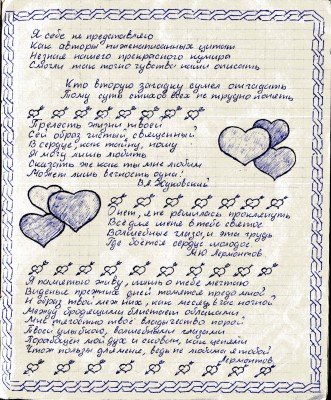 Я себе не представляю
Как авторы ниженаписанных цитат
Не зная нашего прекрасного кумира
Смогли так точно чувства наши описать
Кто вторую загадку сумел отгадать
Тому суть стихов всех не трудно понять
Прелесть жизни твоей
Сей образ чистый, священный
В сердце, как тайну, ношу
Я могу лишь любить
Сказать же как ты мне любим
Может лишь вечность одна!
В.А Жуковский
О нет, я не решилась проклянуть
Всё для меня в тебе святое
Волшебные глаза, и эта грудь
Где бьётся сердце молодое
М.Ю Лермонтов
Я памятью живу, лишь о тебе мечтаю
Виденья прежних дней толпятся предо мной
И образ твой меж них, как месяц в час ночной
Между бродящими блистает облаками
Мне тягостно твоё владычество порой
Твоей улыбкою, волшебными глазами
Порабощён мой дух и скован, как цепями
Что ж пользы для меня, ведь не любима я тобой
Лермонтов